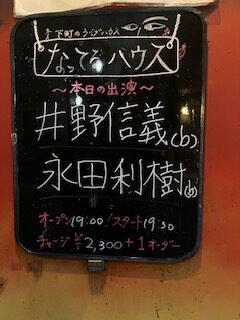 下町のライブハウス
なってるハウス
～本日の出演～
井野信義(b)
永田利樹(b)
オープン19:00/スタート19:30
チャージ¥2,300+1オーダー